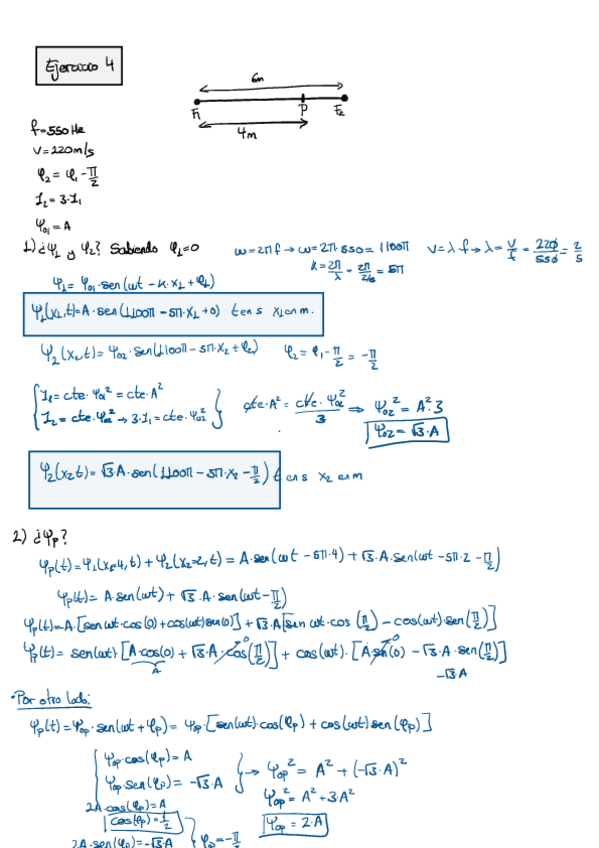 Ejercicio 4
6m
F₁ P F₂
4m
f=550Hz
v=220m/s
φ₂ = φ₁ - π/2
I₂ = 3·I₁
Ψ₀₁ = A
1) ¿Ψ₁ y Ψ₂? Sabiendo φ₁=0 ω=2πf → ω=2π·550= 1100π v=λ·f → λ = v/f = 220/550 = 2/5
k = 2π/λ = 2π/2/5 = 5π
Ψ₁ = Ψ₀₁·sen(ωt - k·x₁ + φ₁)
Ψ₁(x₁,t)=A·sen(1100π - 5π·x₁ + 0) t en s x₁ en m.
Ψ₂(x₂,t) = Ψ₀₂·sen(1100π - 5π·x₂ + φ₂) φ₂ = φ₁ - π/2 = -π/2
{ I₁ = cte·Ψ₀₁² = cte·A²
I₂ = cte·Ψ₀₂² → 3·I₁ = cte·Ψ₀₂² } cte·A² = cte·Ψ₀₂²/3 ⇒ Ψ₀₂² = A²·3
Ψ₀₂ = √3·A
Ψ₂(x₂,t) = √3·A·sen(1100π - 5π·x₂ - π/2) t en s x₂ en m
2) ¿Ψp?
Ψp(t) = Ψ₁(x₁=4,t) + Ψ₂(x₂=2,t) = A·sen(ωt - 5π·4) + √3·A·sen(ωt - 5π·2 - π/2)
Ψp(t) = A·sen(ωt) + √3·A·sen(ωt - π/2)
Ψp(t)=A·[sen ωt·cos(0) + cos(ωt)sen(0)] + √3·A[sen ωt·cos(π/2) - cos(ωt)·sen(π/2)]
Ψp(t) = sen(ωt)[A·cos(0) + √3·A·cos(π/2)] + cos(ωt)·[A·sen(0) - √3·A·sen(π/2)]
A 0 0 -√3·A
·Por otro lado:
Ψp(t)=Ψop·sen(ωt + φp) = Ψop·[sen(ωt)·cos(φp) + cos(ωt)sen(φp)]
{ Ψop·cos(φp) = A
Ψop·sen(φp) = -√3·A } → Ψop² = A² + (-√3·A)²
Ψop² = A² + 3A²
2A·cos(φp)=A
cos(φp)=1/2 Ψop = 2·A
2A·sen(φp)=-√3·A } φp = -π/3